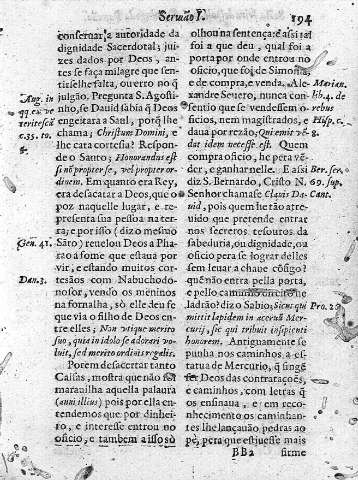 Sermão I. 194
conseruar a autoridade da
dignidade Sacerdotal; jui
zes dados por Deos, an-
tes se faça milagre que sen-
tirselhe falta, ou erro no q̃
julgão. Pregunta S. Agosi-
nho, se Dauid sabia q̃ Deos
engeitara a Saul, porq̃ lhe
chama; Christum Domini, e
lhe cata cortesia? Respon-
de o Santo; Honorandus est
nõ propter se, vel propter or-
dinem. Em quanto era Rey,
era desacatar a Deos, que o
poz naquelle lugar, e re-
presenta sua pessoa na ter-
ra; e por isso (diz o mesmo
Sãto) reuelou Deos a Pha-
raó a fome que estaua por
vir, e estando muitos cor-
tesãos com Nabuchodo-
nosor, vendo os meninos
na fornalha, só elle deu fe
que via o filho de Deos en-
tre elles; Non vtique merito
suo, quia in idolo se adorari vo-
luit, sed merito ordinis regalis.
Porem desacertar tanto
Caifas, mostra que não foi
marauilha aquella palaura
(anni illius) pois por ella en-
tendemos que por dinhei-
ro, e interesse entrou no
officio, e tambem a isso só
Aug. in
Gen. 41.
Dan. 3.
olhou na sentença: e assi tal
foi a que deu, qual foi a
porta por onde entrou no
officio, que foi de Simonia
e de compra, e venda. Ale-
xandre Seuero, nunca con-
sentio que se vendessem o-
ficios, nem magistrados, e
daua por rezão; Qui emit vē-
dat idem necesse est. Quem
compra officio, he pera vē-
der, e ganhar nelle. E assi
diz S. Bernardo, Cristo N.
Senhor chamase Clauis Da-
uid, pois quem he tão atre-
uido que pretende entrar
nos secretos tesouros da
sabeduria, ou dignidade, ou
oficio pera se lograr delles
sem leuar a chaue cõsigo?
quē não entra pella porta,
e pello caminho direito he
ladrão? diz o Sabio; Sicut qui
mittit lapidem in aceruũ Mer-
curij, sic qui tribuit insipienti
honorem. Antiguamente se
punha nos caminhos a es-
tatua de Mercurio, q̃ fingē
ser Deos das contratações,
e caminhos, com letras q̃
os ensinaua, e em reco-
nhecimento os caminhan-
tes lhe lançauão pedras ao
pè, pera que estiuesse mais
Marian.
lib. 4. de
rebus
Hisp. c.
8.
Ber. ser.
69. sup.
Cant.
Pro. 2
BB2 firme